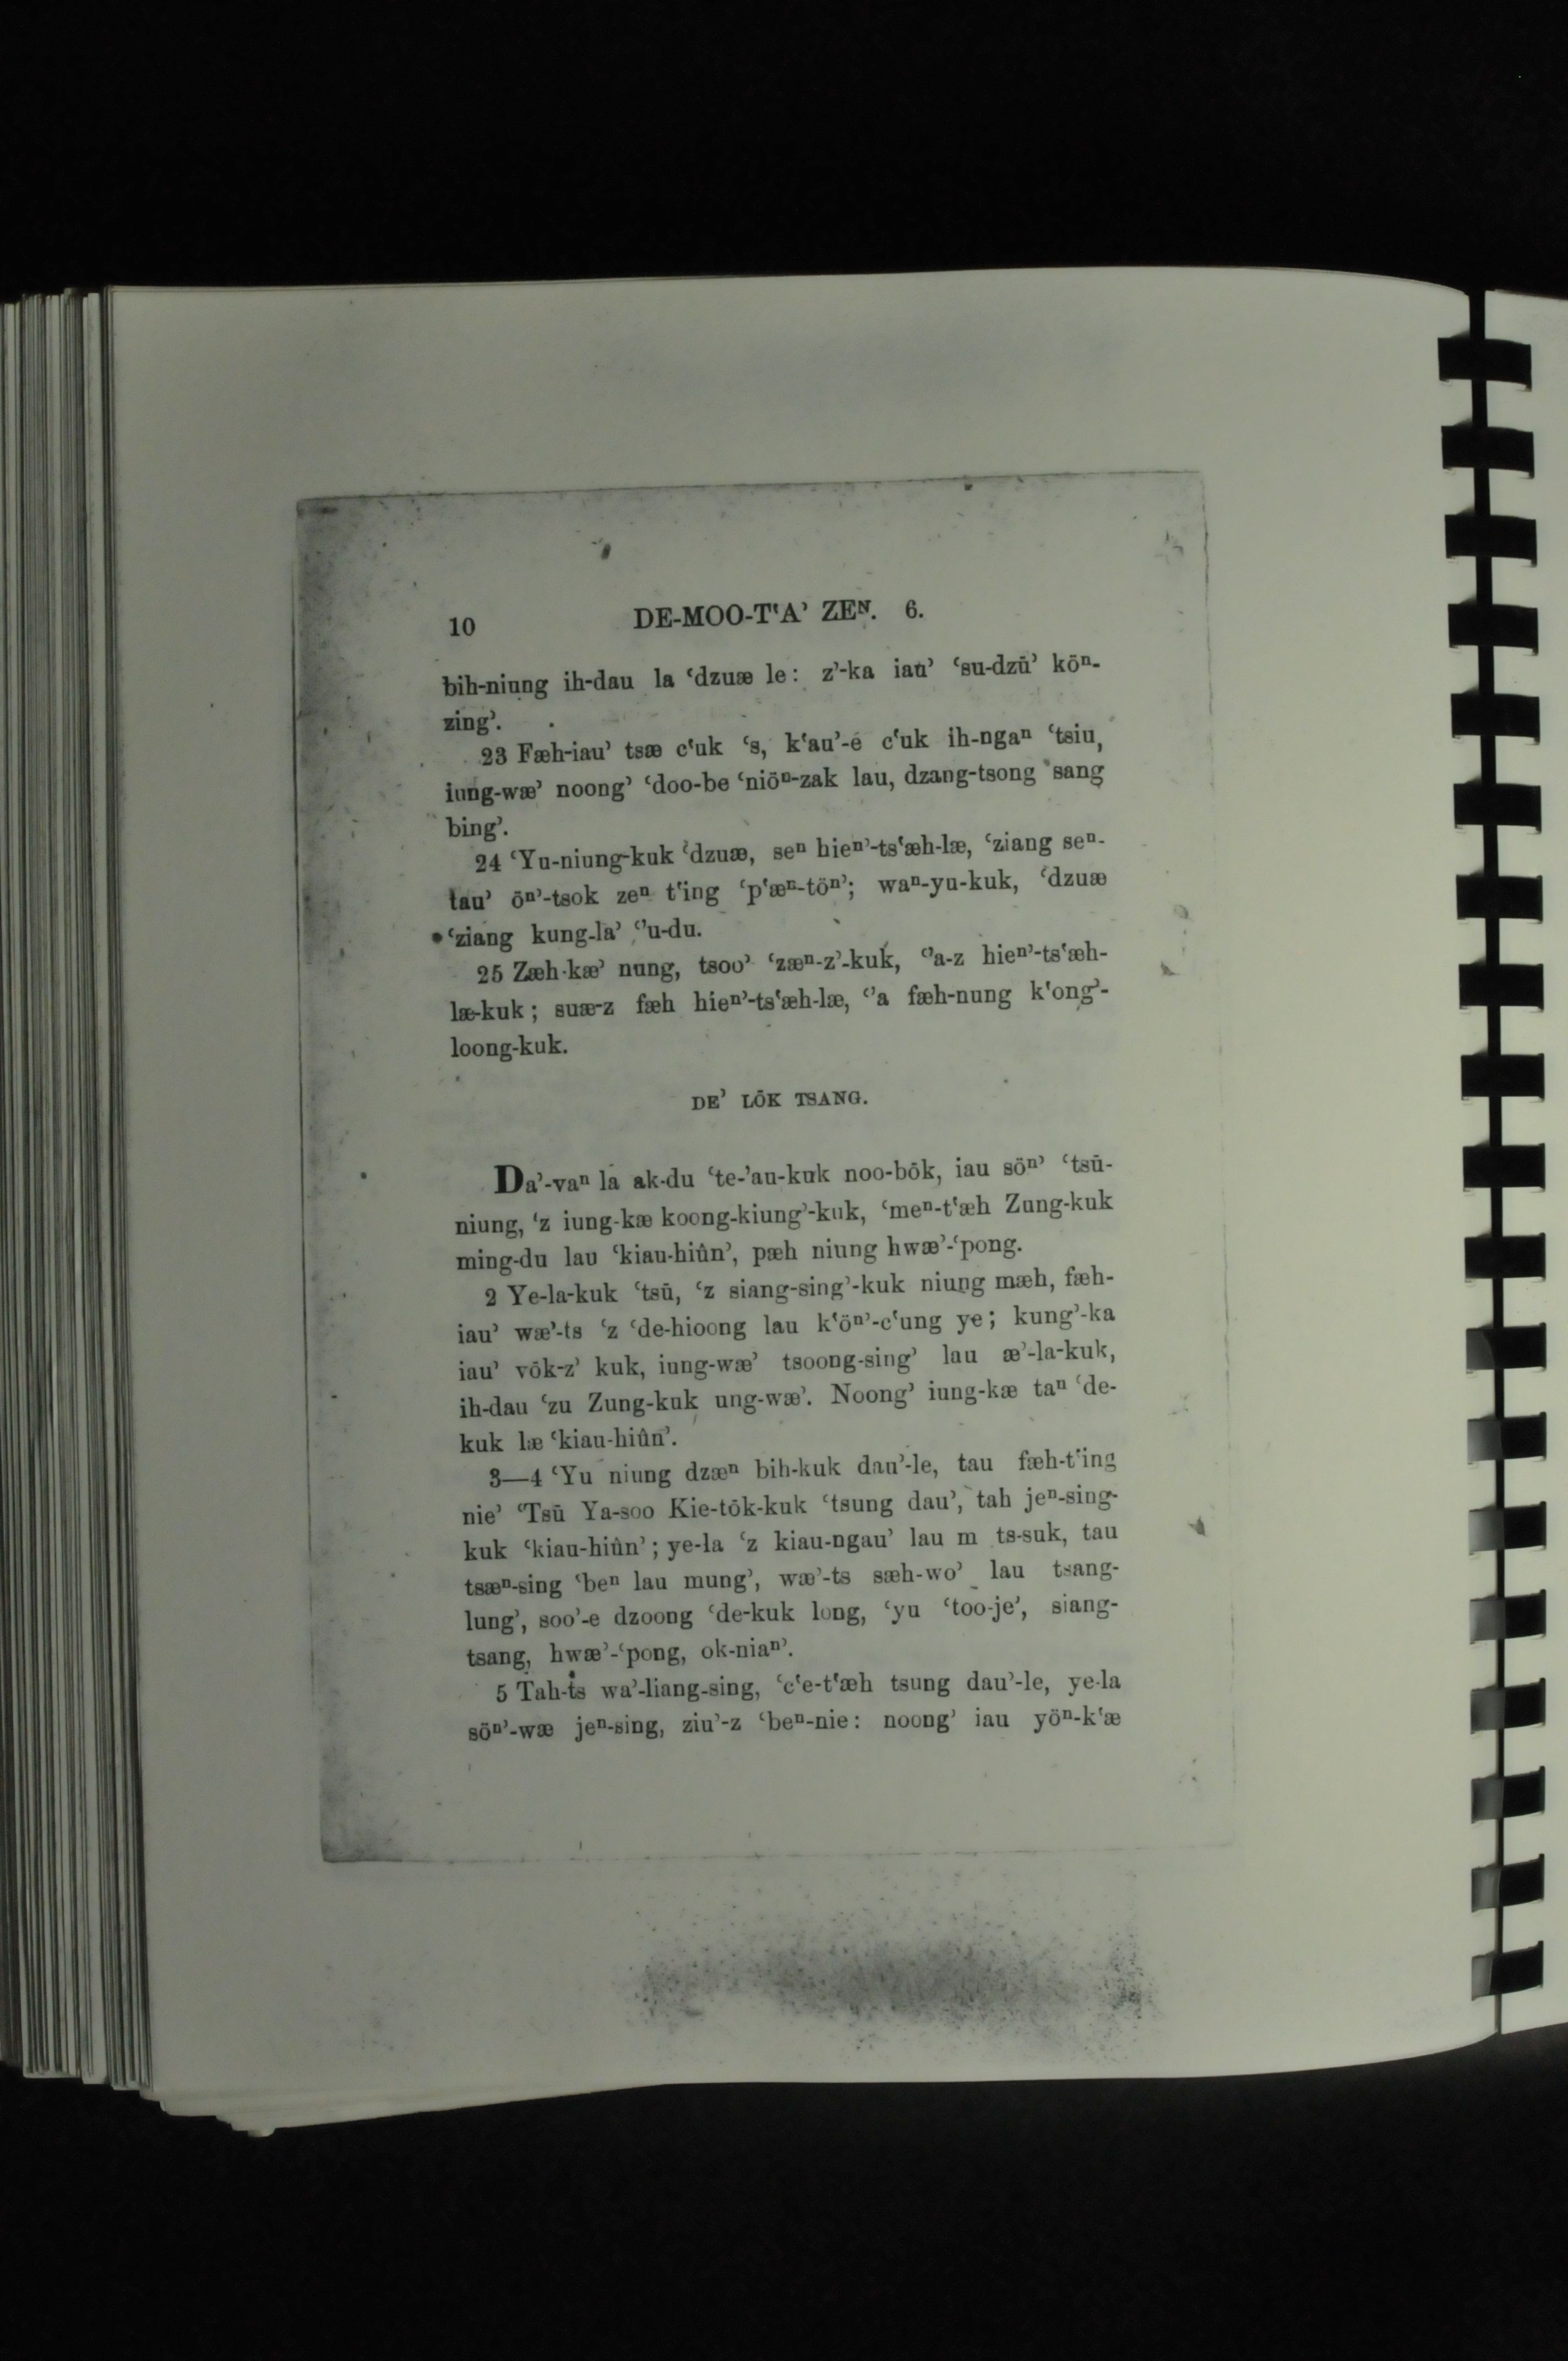 10 DE-MOO-TʽAʼ ZEᴺ. 6.
bih-niung ih-dau la ʽdzuæ le: zʼ-ka iauʼ ʽsu-dzūʼ köⁿ-
zingʼ.
23 Fæh-iauʼ tsæ cʽuk ʽs, kʽauʼ-e cʽuk ih-ngaⁿ ʽtsiu,
iung-wæʼ noongʼ ʽdoo-be ʽniöⁿ-zak lau, dzang-tsong sang
bingʼ.
24 ʽYu-niung-kuk ʽdzuæ, seⁿ hieⁿʼ-tsʽæh-læ, ʽziang seⁿ-
tauʼ öⁿʼ-tsok zeⁿ tʽing ʽpʽæⁿ-töⁿʼ; waⁿ-yu-kuk, ʽdzuæ
ʽziang kung-laʼ ʽʼu-du.
25 Zæh-kæʼ nung, tsooʼ ʽzæⁿ-zʼ-kuk, ʽʼa-z hieⁿʼ-tsʽæh-
læ-kuk; suæ-z fæh hieⁿʼ-tsʽæh-læ, ʽʼa fæh-nung kʽongʼ-
loong-kuk.
DEʼ LŌK TSANG.
Daʼ-vaⁿ la ak-du ʽte-ʼau-kuk noo-bōk, iau söⁿʼ ʽtsū-
niung, ʽz iung-kæ koong-kiungʼ-kuk, ʽmeⁿ-tʽæh Zung-kuk
ming-du lau ʽkiau-hiûnʼ, pæh niung hwæʼ-ʽpong.
2 Ye-la-kuk ʽtsū, ʽz siang-singʼ-kuk niung mæh, fæh-
iauʼ wæʼ-ts ʽz ʽde-hioong lau kʽöⁿʼ-cʽung ye; kungʼ-ka
iauʼ vōk-zʼ kuk, iung-wæʼ tsoong-singʼ lau æʼ-la-kuk,
ih-dau ʽzu Zung-kuk ung-wæʼ. Noongʼ iung-kæ taⁿ ʽde-
kuk læ ʽkiau-hiûnʼ.
3—4 ʽYu niung dzæⁿ bih-kuk dauʼ-le, tau fæh-tʽing
nieʼ ʽTsū Ya-soo Kie-tōk-kuk ʽtsung dauʼ, tah jeⁿ-sing-
kuk ʽkiau-hiûnʼ; ye-la ʽz kiau-ngauʼ lau m ts-suk, tau
tsæⁿ-sing ʽbeⁿ lau mungʼ, wæʼ-ts sæh-woʼ lau tsang-
lungʼ, sooʼ-e dzoong ʽde-kuk long, ʽyu ʽtoo-jeʼ, siang-
tsang, hwæʼ-ʽpong, ok-niaⁿʼ.
5 Tah-ts waʼ-liang-sing, ʽcʽe-tʽæh tsung dauʼ-le, ye-la
söⁿʼ-wæ jeⁿ-sing, ziuʼ-z ʽbeⁿ-nie: noongʼ iau yöⁿ-kʽæ